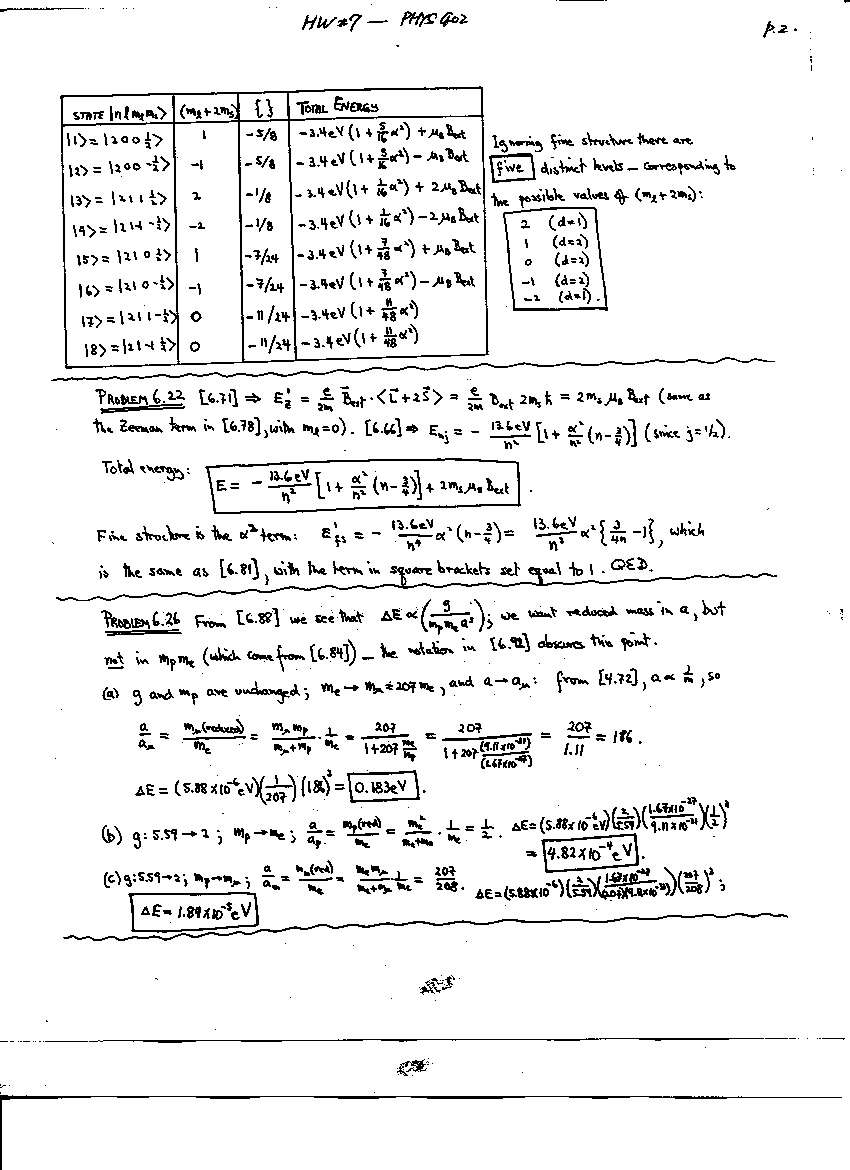 HW #7 — PHYS 402
p.2.
STATE |n l mℓ ms⟩ (mℓ+2ms) { } TOTAL ENERGY
|1⟩ = |2 0 0 ½⟩ 1 -5/8 -3.4eV(1 + 5/16 α²) + μB Bext
|2⟩ = |2 0 0 -½⟩ -1 -5/8 -3.4eV(1 + 5/16 α²) - μB Bext
|3⟩ = |2 1 1 ½⟩ 2 -1/8 -3.4eV(1 + 1/16 α²) + 2μB Bext
|4⟩ = |2 1 -1 -½⟩ -2 -1/8 -3.4eV(1 + 1/16 α²) - 2μB Bext
|5⟩ = |2 1 0 ½⟩ 1 -7/24 -3.4eV(1 + 7/48 α²) + μB Bext
|6⟩ = |2 1 0 -½⟩ -1 -7/24 -3.4eV(1 + 7/48 α²) - μB Bext
|7⟩ = |2 1 1 -½⟩ 0 -11/24 -3.4eV(1 + 11/48 α²)
|8⟩ = |2 1 -1 ½⟩ 0 -11/24 -3.4eV(1 + 11/48 α²)
Ignoring fine structure there are
five distinct levels — corresponding to
the possible values of (mℓ+2ms):
2 (d=1)
1 (d=2)
0 (d=2)
-1 (d=2)
-2 (d=1).
PROBLEM 6.22 [6.71] ⇒ E'Z = e/2m B⃗ext · <L⃗+2S⃗> = e/2m Bext 2ms ħ = 2ms μB Bext (same as
the Zeeman term in [6.78], with mℓ=0). [6.66] ⇒ Enj = - 13.6eV/n² [1 + α²/n² (n - 3/4)] (since j=½).
Total energy: E = - 13.6eV/n² [1 + α²/n² (n - 3/4)] + 2ms μB Bext .
Fine structure is the α² term: E'fs = - 13.6eV/n⁴ α² (n - 3/4) = 13.6eV/n³ α² {3/4n - 1}, which
is the same as [6.81], with the term in square brackets set equal to 1. QED.
PROBLEM 6.26 From [6.88] we see that ΔE ∝ (g/mp me a³); we want reduced mass in a, but
not in mp me (which come from [6.84]) — the notation in [6.92] obscures this point.
(a) g and mp are unchanged; me → mμ = 207 me, and a → aμ: from [4.72], a ∝ 1/m, so
a/aμ = mμ(reduced)/me = mμ mp/mμ+mp · 1/me = 207/1+207 me/mp = 207/1+207 (9.11×10⁻³¹)/(1.67×10⁻²⁷) = 207/1.11 = 186 .
ΔE = (5.88×10⁻⁶eV)(1/207)(186)³ = 0.183eV .
(b) g: 5.59 → 2; mp → me; a/ap = mp(red)/me = me²/me+me · 1/me = 1/2 . ΔE = (5.88×10⁻⁶eV)(2/5.59)(1.67×10⁻²⁷/9.11×10⁻³¹)(1/2)³
= 4.82×10⁻⁴eV .
(c) g: 5.59 → 2; mp → mμ; a/am = mm(red)/me = me mμ/me+mμ 1/me = 207/208 . ΔE = (5.88×10⁻⁶)(2/5.59)(1.67×10⁻²⁷/(207)(9.11×10⁻³¹))(207/208)³ ;
ΔE = 1.84×10⁻⁵eV